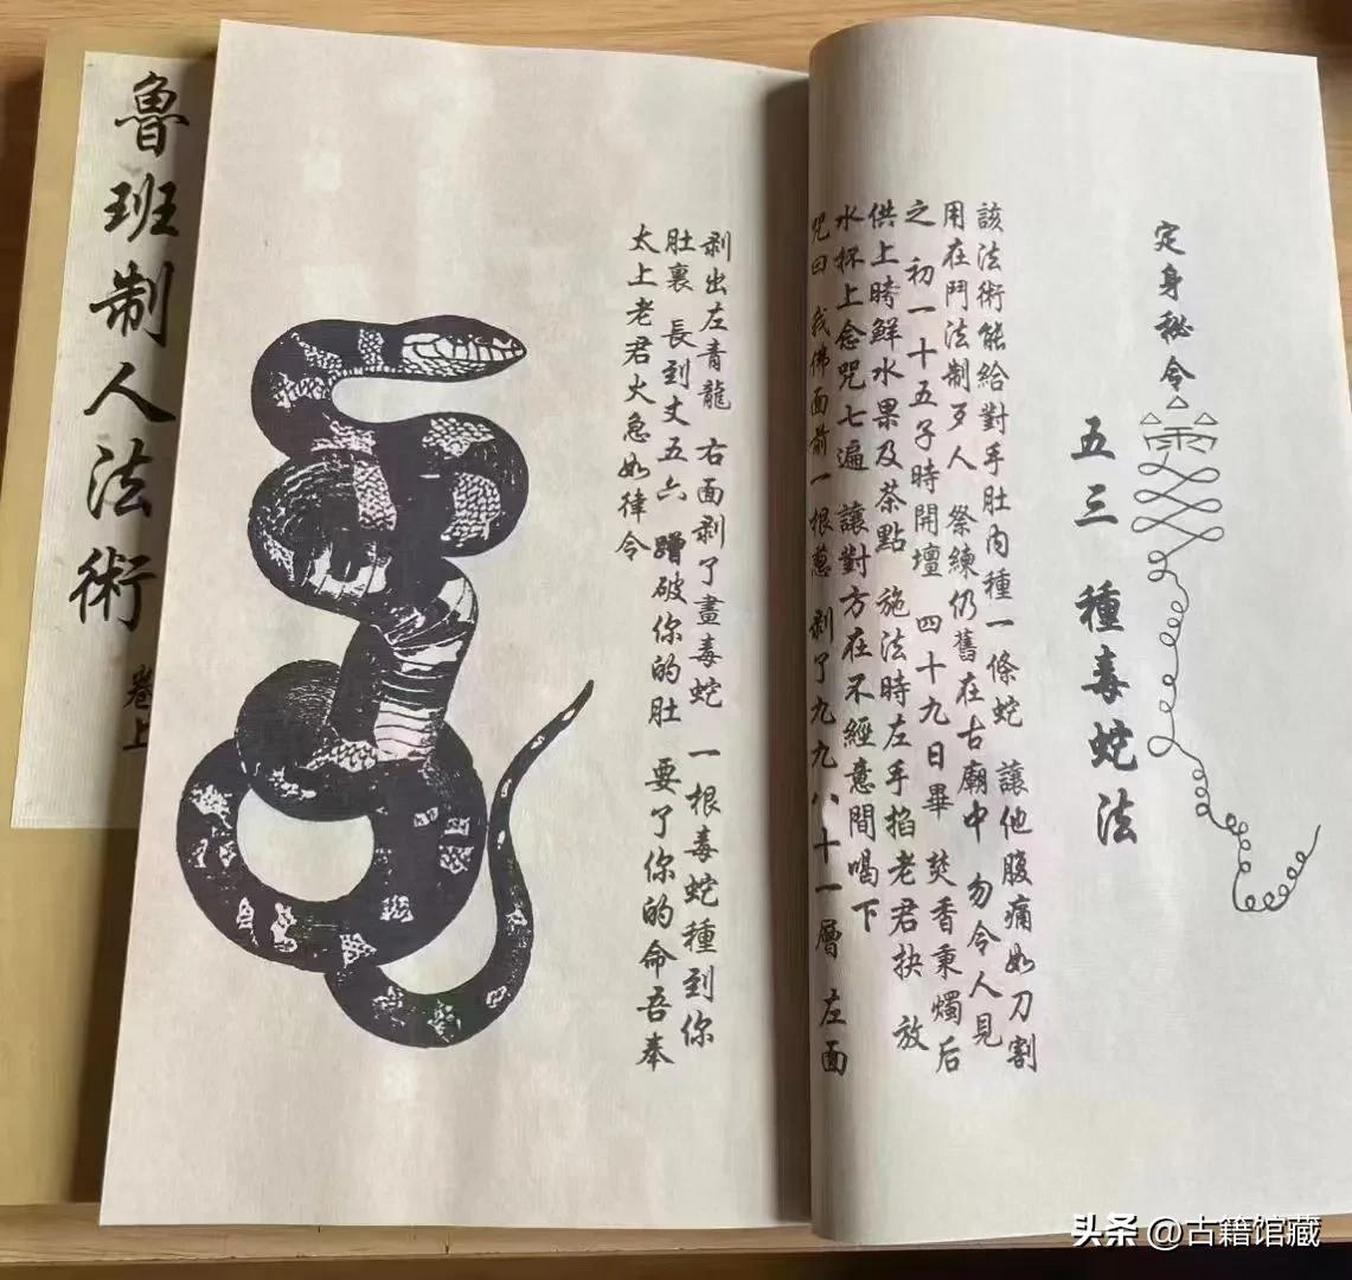 魯班制人法術
卷上
定身秘令
五三 種毒蛇法
該法術能給對手肚内種一條蛇 讓他腹痛如刀割
用在鬥法制歹人 祭練仍舊在古廟中 勿令人見
之 初一十五子時開壇 四十九日畢 焚香秉燭后
供上時鮮水果及茶點 施法時左手掐老君抉 放
水杯上念咒七遍 讓對方在不經意間喝下
咒曰 我佛面前一根蔥 剥了九九八十一層 左面
剥出左青龍 右面剥了畫毒蛇 一根毒蛇種到你
肚裏 長到丈五六 蹭破你的肚 要了你的命吾奉
太上老君火急如律令
头条 @古籍馆藏